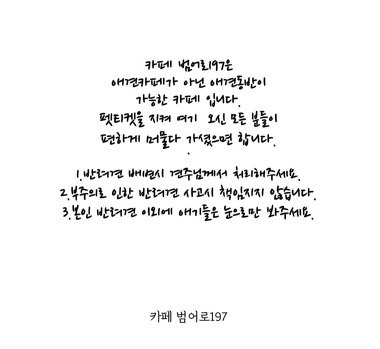 카페 범어로197은
애견카페가 아닌 애견동반이
가능한 카페 입니다.
펫티켓을 지켜 여기 오신 모든 분들이
편하게 머물다 가셨으면 합니다.
.
1.반려견 배변시 견주님께서 처리해주세요.
2.부주의로 인한 반려견 사고시 책임지지 않습니다.
3.본인 반려견 이외에 애기들은 눈으로만 봐주세요.
카페 범어로197